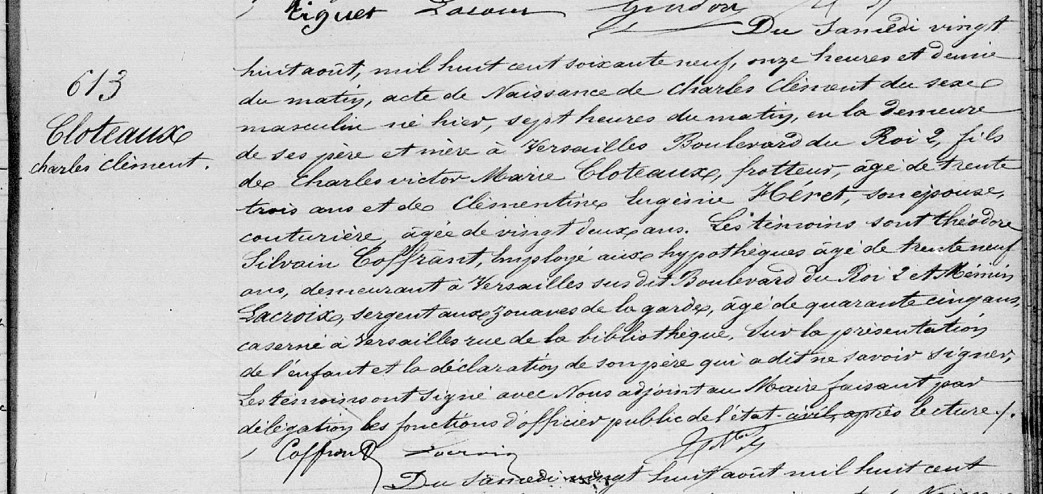 Tiguet Lacour Gindon
Du Samedi vingt
613
Cloteaux
charles clément.
huit août, mil huit cent soixante neuf, onze heures et demie
du matin, acte de Naissance de Charles Clément du sexe
masculin né hier, sept heures du matin, en la demeure
de ses père et mère à Versailles Boulevard du Roi 2, fils
de Charles victor Marie Cloteaux, frotteur, âgé de trente
trois ans et de Clémentine Eugénie Héret, son épouse,
couturière, âgée de vingt deux ans. Les témoins sont théodore
Silvain Coffrant, Employé aux hypothèques âgé de trente neuf
ans, demeurant à Versailles susdit Boulevard du Roi 2 et Mémin
Lacroix, sergent aux zouaves de la garde, âgé de quarante cinq ans,
caserné à Versailles rue de la bibliothèque. Sur la présentation
de l'enfant et la déclaration de son père qui a dit ne savoir signer,
Les témoins ont signé avec Nous adjoint au Maire faisant par
délégation les fonctions d'officier public de l'état-civil, après lecture /.
Coffrant
Du Samedi vingt huit août mil huit cent